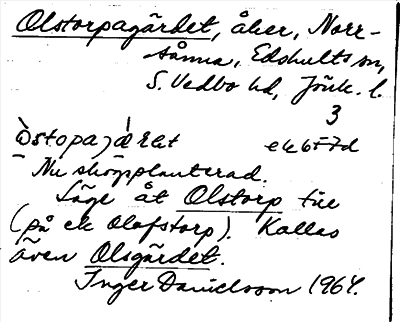 Olstorpagärdet, åker, Norr-
sånna, Edshults sn,
S. Vedbo hd, Jönk. l.
3
Nu skogsplanterad.
Läge åt Olstorp till
(på ek Olofstorp). Kallas
även Olsgärdet.
Inger Danielsson 1964.